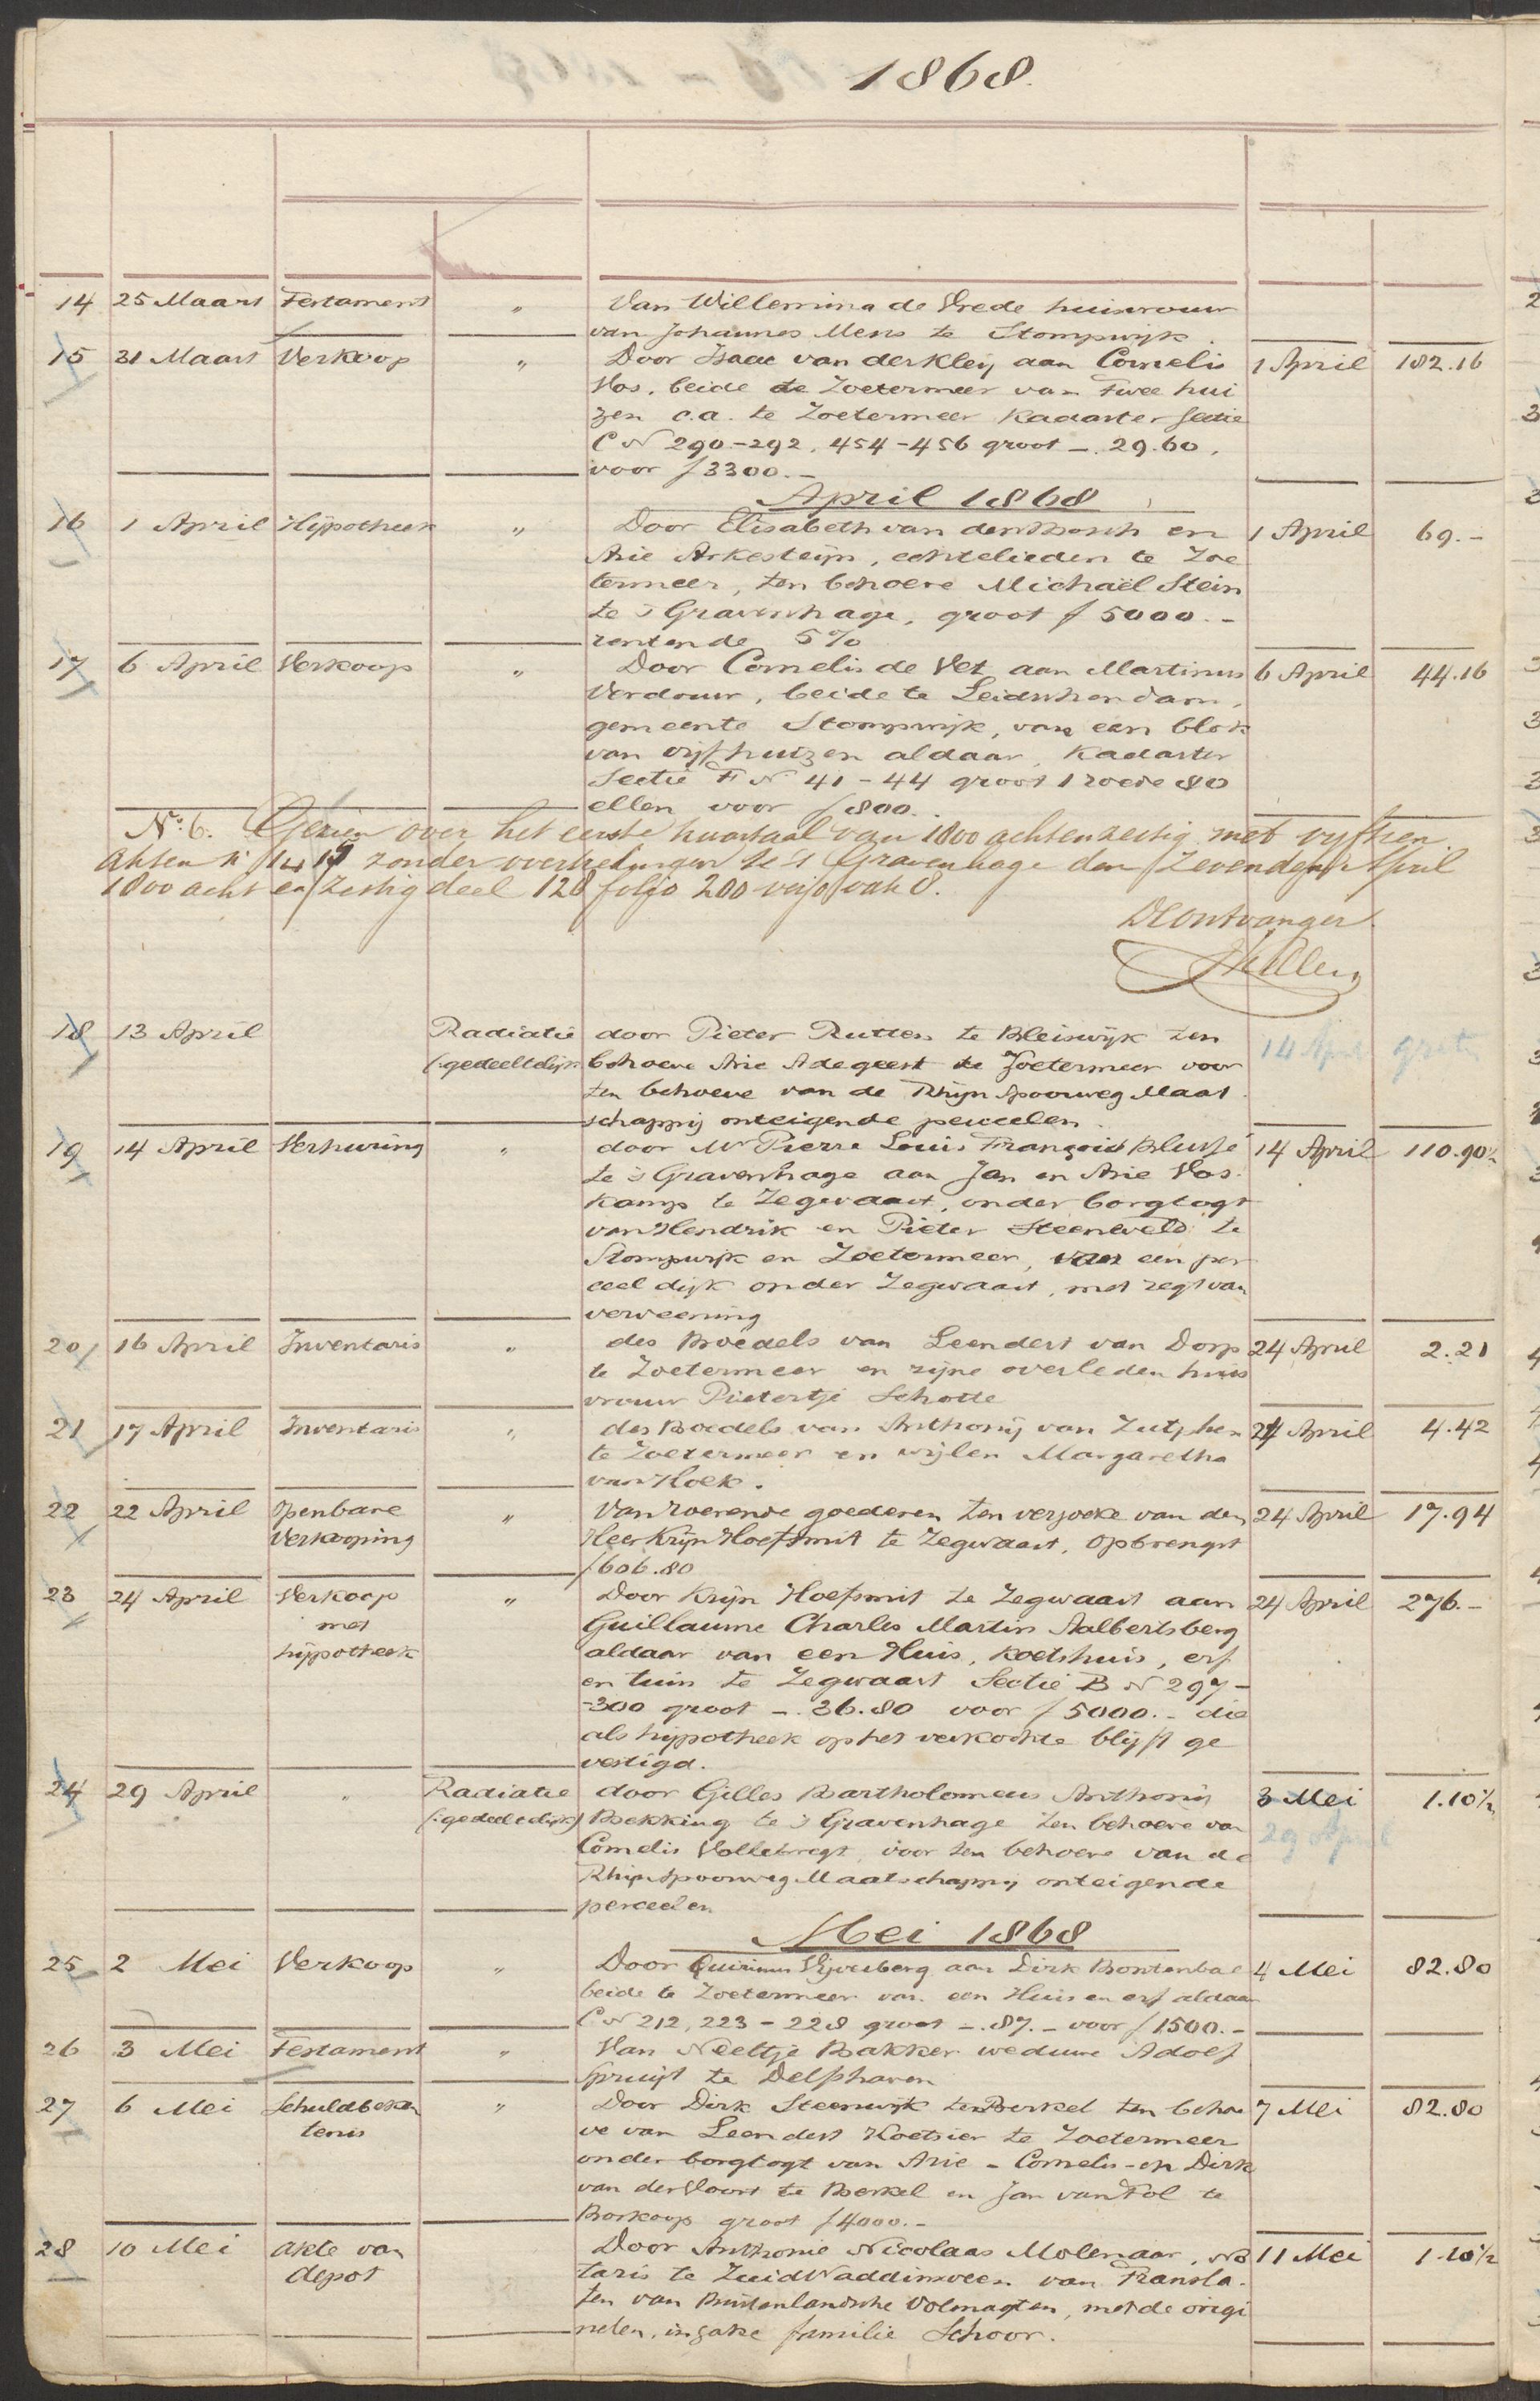 1868.
14 25 Maart Testament " Van Willemina de Vrede huisvrouw
van Johannes Mens te Stompwijk.
15 31 Maart Verkoop " Door Isaac van der Kleij aan Cornelis 1 April 182.16
Vos, beide te Zoetermeer van Twee hui
zen c.a. te Zoetermeer Kadaster Sectie
C N 290-292, 454-456 groot -. 29.60,
voor f 3300.-
April 1868
16 1 April Hijpotheek " Door Elisabeth van den Bosch en 1 April 69.-
Arie Arkesteijn, echtelieden te Zoe
termeer, ten behoeve Michaël Stein
te 's Gravenhage, groot f 5000.-
rentende 5%
17 6 April Verkoop " Door Cornelis de Vet aan Martinus 6 April 44.16
Verdouw, beide te Leidschendam,
gemeente Stompwijk, van een blok
van vijf huizen aldaar, Kadaster
Sectie F N 41-44 groot 1 roede 80
ellen voor f 800.
No. 6. Gezien over het eerste kwartaal van 1800 achtenzestig met vyftien
Akten n 1 tot 15 zonder overtredingen te 's Gravenhage den zevenden April
1800 acht en zestig deel 128 folio 200 verso vak 8.
De Ontvanger.
18 13 April Radiatie door Pieter Rutten te Bleiswijk ten 14 April gratis
(:gedeeltelijk behoeve Arie Adegeest te Zoetermeer voor
ten behoeve van de Rhijn Spoorweg Maat
schappij onteigende perceelen.
19 14 April Verhuring " door Mr Pierre Louis François Blussé 14 April 110.90½
te 's Gravenhage aan Jan en Arie Vos.
kamp te Zegwaart, onder borgtogt
van Hendrik en Pieter Steenveld te
Stompwijk en Zoetermeer, van een per
ceel dijk onder Zegwaart, met regt van
verveening
20 16 April Inventaris " des Boedels van Leendert van Dorp 24 April 2.21
te Zoetermeer en zijne overleden huis
vrouw Pietertje Schotte
21 17 April Inventaris " des Boedels van Anthonij van Zutphen 24 April 4.42
te Zoetermeer en wijlen Margaretha
van Hoek.
22 22 April Openbare " Van roerende goederen ten verzoeke van den 24 April 17.94
Verkooping Heer Krijn Hoefsmit te Zegwaart, opbrengst
f 606.80
23 24 April Verkoop " Door Krijn Hoefsmit te Zegwaart aan 24 April 276.-
met Guillaume Charles Martin Aalbertsberg
hijpotheek aldaar van een Huis, Koetshuis, erf
en tuin te Zegwaart Sectie B N 297-
-300 groot -. 36.80 voor f 5000.- die
als hijpotheek op het verkochte blijft ge
vestigd.
24 29 April " Radiatie door Gilles Bartholomeus Anthonij 3 Mei 1.10½
(:gedeeltelijk) Bekking te 's Gravenhage ten behoeve van 29 April
Cornelis Vollebregt, voor ten behoeve van de
Rhijn Spoorweg Maatschappij onteigende
perceelen
Mei 1868
25 2 Mei Verkoop " Door Quirinus Vijverberg aan Dirk Bontenbal 4 Mei 82.80
beide te Zoetermeer van een Huis en erf aldaar
C N 212, 223-228 groot -. 87.- voor f 1500.-
26 3 Mei Testament " Van Neeltje Bakker weduwe Adolf
Spruijt te Delfshaven
27 6 Mei Schuldbeken " Door Dirk Steenwijk te Berkel ten behoe 7 Mei 82.80
tenis ve van Leendert Koetsier te Zoetermeer
onder borgtogt van Arie - Cornelis - en Dirk
van der Voort te Berkel en Jan van Tol te
Boskoop groot f 4000.-
28 10 Mei Akte van Door Anthonie Nicolaas Molenaar, No 11 Mei 1.10½
depot taris te Zuid Waddinxveen van Transla.
ten van Buitenlandsche Volmagten, met de origi
nelen, in zake familie Schoor.